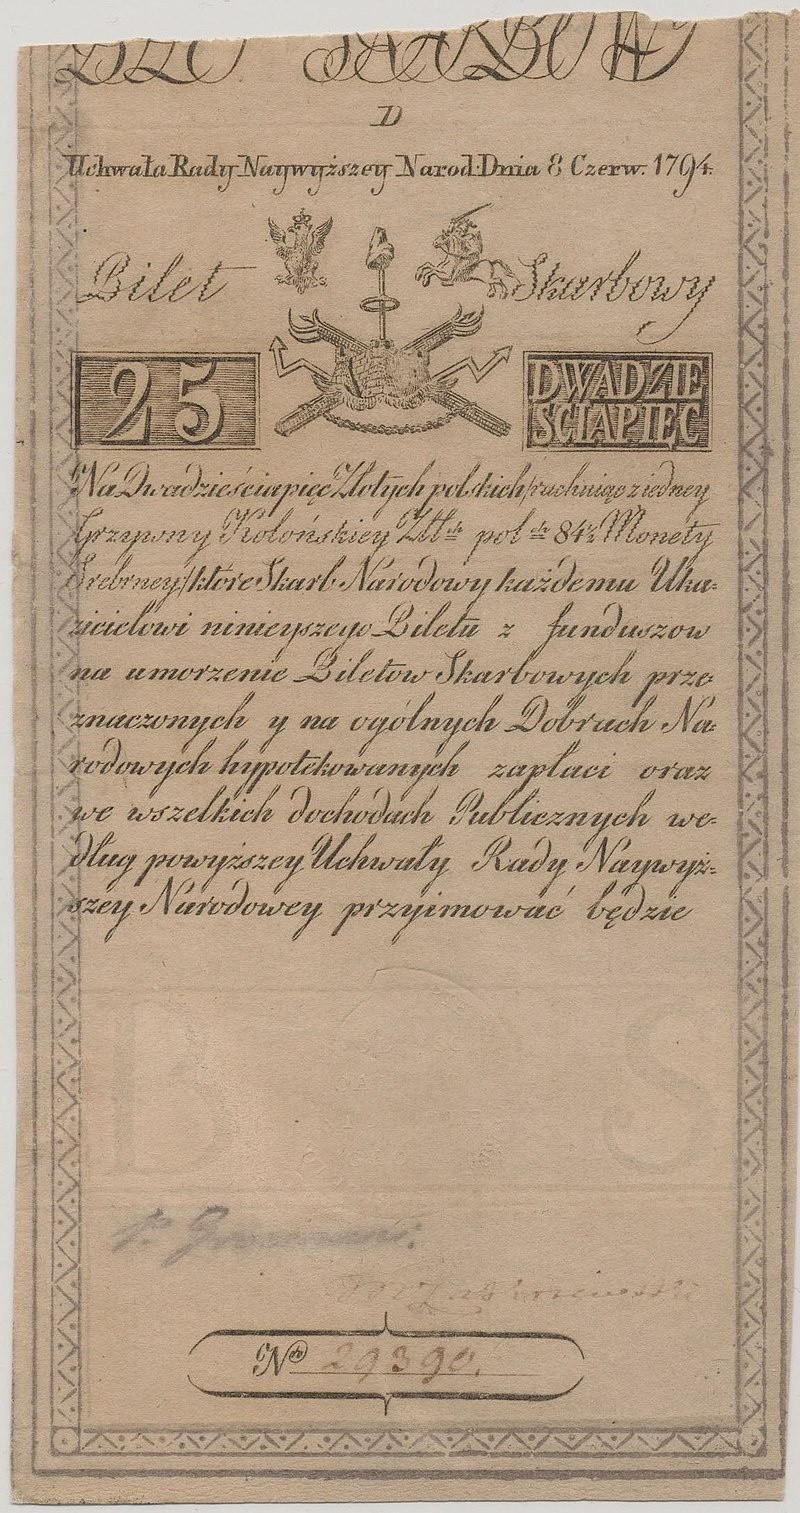 D
Uchwała Rady Naywyższey Narod: Dnia 8 Czerw. 1794.
Bilet Skarbowy
25 DWADZIE
ŚCIAPIĘĆ
Na Dwadzieścia pięć Złotych polskich/rachuiąc z iedney
Grzywny Kolońskiey Złł. pol. 84½ Monety
Srebrney/które Skarb Narodowy każdemu Uka=
zicielowi ninieyszego Biletu z funduszow
na umorzenie Biletow Skarbowych prze=
znaczonych y na ogólnych Dobrach Na=
rodowych hypotekowanych zapłaci oraz
we wszelkich dochodach Publicznych we=
dług powyższey Uchwały Rady Naywyż=
szey Narodowey przyimować będzie
B S
No 29390.